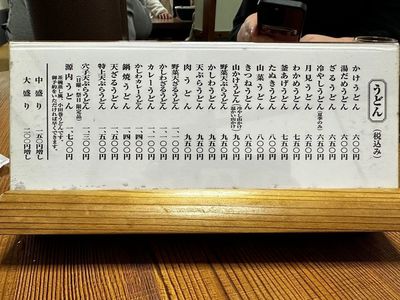 うどん
(税込み)
かけうどん 六〇〇円
湯だめうどん 六〇〇円
ざるうどん 六五〇円
冷やしうどん(夏季のみ) 六五〇円
月見うどん 六五〇円
わかめうどん 七五〇円
釜あげうどん 七五〇円
たぬきうどん 八〇〇円
きつねうどん 八〇〇円
山菜うどん 八〇〇円
山かけうどん 九〇〇円
野菜天ぷらうどん 九五〇円
かしわうどん 九五〇円
天ぷらうどん 九五〇円
肉うどん 九五〇円
野菜天ざるうどん 一一〇〇円
かしわざるうどん 一一〇〇円
カレーうどん 一一〇〇円
かしわカレーうどん 一四〇〇円
鍋焼うどん 一四〇〇円
天ざるうどん 一五〇〇円
特上天ぷらうどん 一五〇〇円
穴子天ぷらうどん 一三〇〇円
(日曜・祭日 限定品)
源内うどん 一七〇〇円
茶碗蒸し風、小田巻うどんです。
御予約をいただければ早くできます。
中盛り 一五〇円増し
大盛り 二〇〇円増し